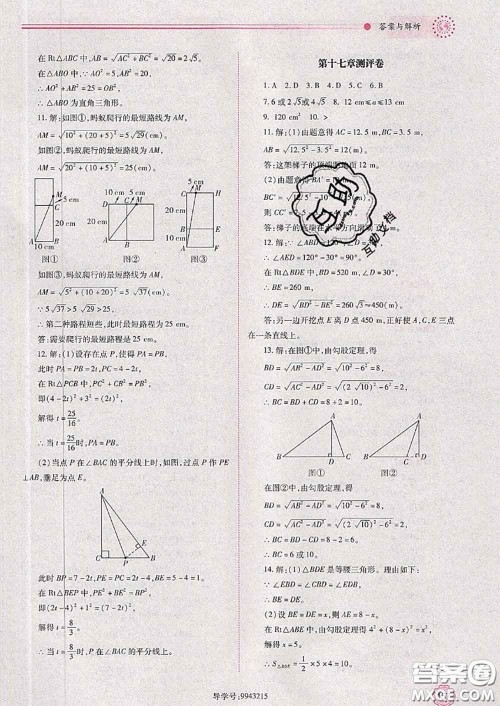 答案与解析
在 Rt△ABC 中,
AB = √(AC²+BC²) = √20 = 2√5.
在 △ABO 中,
∴AO² + AB² = BO²,
∴△ABO 为直角三角形.
11. 解:如图①,蚂蚁爬行的最短路线为 AM,
AM = √(10²+(20+5)²) = 5√29 (cm).
如图②,蚂蚁爬行的最短路线为 AM,
AM = √(20²+(10+5)²) = 25(cm).
5 cm
M
B
C
20 cm
A
10 cm
图①
图②
图③
如图③,蚂蚁爬行的最短路线为 AM,
∵5√37 > 5√29 > 25,
∴第二种路程短些,此时最短路程为 25 cm.
答:需要爬行的最短路程是 25 cm.
12. 解:(1)设存在点 P,使得 PA=PB,
此时 PA=PB=2t,PC=4-2t,
在 Rt△PCB 中,PC²+CB²=PB²,
即(4-2t)²+3²=(2t)²,
解得 t=25/16,
∴当 t=25/16 时,PA=PB.
(2)当点 P 在 ∠BAC 的平分线上时,如图,过点 P 作 PE
⊥AB,垂足为点 E.
A
E
C
P
B
此时 BP=7-2t,PE=PC=2t-4,BE=5-4=1,
在 Rt△BEP 中,PE²+BE²=BP²,
即(2t-4)²+1²=(7-2t)²,
解得 t=8/3,
∴当 t=8/3 时,P 在 ∠BAC 的平分线上.
第十七章测评卷
1. A 2. D 3. B 4. D 5. B 6. B
7. 6 或 2√5 或 4√5 8. 12 cm≤a≤13 cm
9. 120 cm² 10. >
11. 解:(1)由题意得 AC=12.5 m,BC=3.5 m,
AB = √(12.5²-3.5²) = 12(m).
答:这架梯子的顶端距地面 12 m.
(2)由题意得 BA'
互助
互助文档
12. 解:∵∠ABD=120°,∠D=30°,
∴∠AED=120°-30°=90°.
在 Rt△BDE 中,BD=520 m,∠D=30°,
∴BE=260 m,
∴DE = √(BD²-BE²) = 260√3≈450(m).
答:另一边开挖点 E 离 D 点 450 m,正好使 A,C,E 三点
在一条直线上.
13. 解:在图①中,由勾股定理,得
BD = √(AB²-AD²) = √(10²-6²) = 8,
CD = √(AC²-AD²) = √((2√10)²-6²) = 2,
∴BC=BD+CD=8+2=10.
A
B
D
C
图①
A
B
C
D
图②
在图②中,由勾股定理,得
BD = √(AB²-AD²) = √(10²-6²) = 8,
CD = √(AC²-AD²) = √((2√10)²-6²) = 2,
∴BC=BD-CD=8-2=6.
∴BC=6 或 10.
14. 解:(1)△BDE 是等腰三角形. 理由如下:
∵∠EBD=∠CBD,∠EDB=∠CBD,
∴∠EBD=∠EDB,
∴BE=DE.
在 Rt△ABE 中,由勾股定理得 4²+(8-x)²=x²,
解得 x=5.
∴S△BDE = 1/2 ×5×4=10.
导学号:9943215
答案圈
MXQE.COM